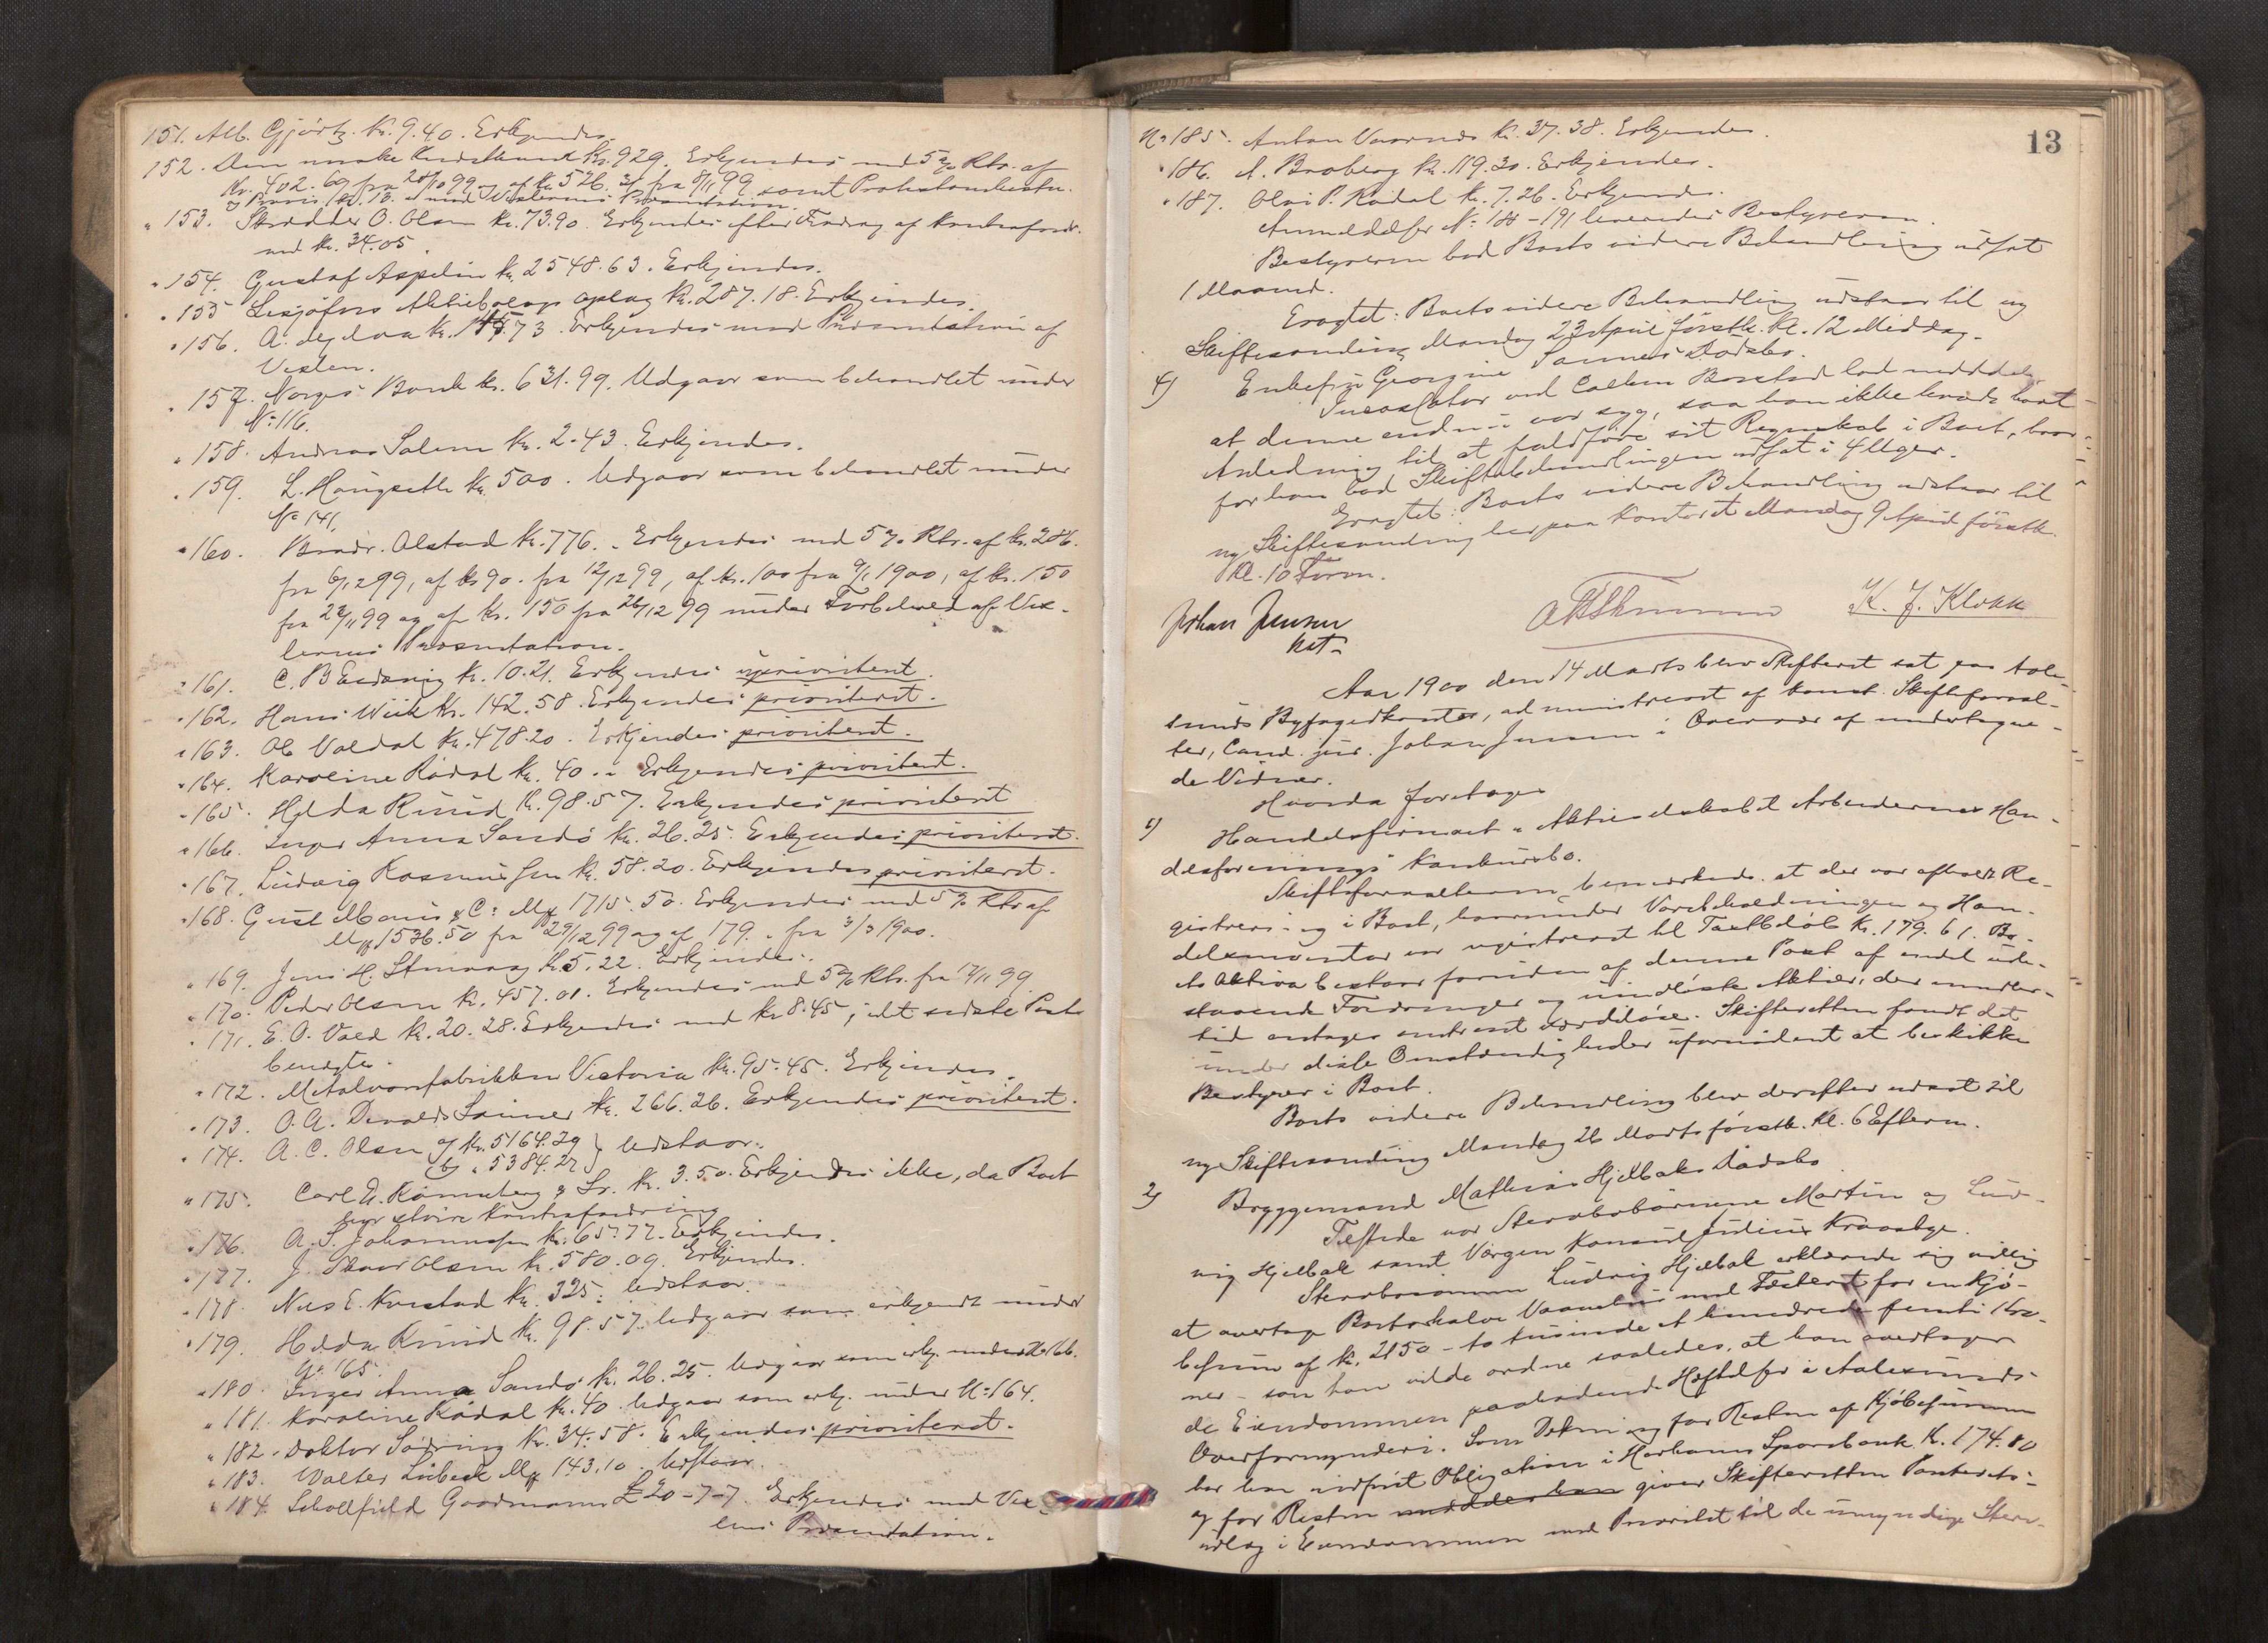 151. Alb. Gjörtz. Kr. 9.40. Erkjendes.
152. Den norske Kreditbank Kr. 929. Erkjendes med 5% Rtr. af
Kr. 402.69 fra 28/10 99 og af Kr. 526.31 fra 8/11 99 samt Protestomkostn.
" 153. Skrædder O. Olsen Kr. 73.90. Erkjendes efter Fradrag af Kontrafordr.
med Kr. 34.05.
" 154. Gustaf Aspelin Kr. 2548.63. Erkjendes.
" 155 Lesjöfors Aktiebolags oplag Kr. 287.18. Erkjendes.
" 156. A. Kr. 73. Erkjendes mod Præsentation af
Vexlen.
" 157. Norges Bank Kr. 631.99. Udgaar som behandlet under
No 116.
" 158. Andreas Salem Kr. 2.43. Erkjendes.
" 159. L. Haugseth Kr. 500. Udgaar som behandlet under
No 141.
" 160. Brødr. Olstad Kr. 776. " Erkjendes med 5% Rtr. af Kr. 286.
fra 6/12 99, af Kr 90. fra 12/12 99, af Kr. 100 fra 9/1 1900, af Kr. 150
fra 22/11 99 og af Kr. 150 fra 26/12 99 under Forbehold af Vex-
lernes Præsentation.
" 161. C. B. Kr. 10.21. Erkjendes uprioritert.
" 162. Hans Wiik Kr. 142.58. Erkjendes prioriteret.
" 163. Ole Valdal Kr. 478.20. Erkjendes prioriteret.
" 164. Karoline Rødal Kr. 40. " Erkjendes prioriteret.
" 165. Hilda Ruud Kr. 98.57. Erkjendes prioriteret
" 166. Inger Anna Sandö Kr. 26.25. Erkjendes prioriteret.
" 167. Ludvig Rasmussen Kr. 58.20. Erkjendes prioriteret.
" 168. Gust Moris & Co Mk 1715.50. Erkjendes med 5% Rtr af
Mk 1536.50 fra 29/12 99 og af 179. " fra 3/3 1900.
" 169. Jens H. Kr. 5.22. Erkjendes.
" 170. Peder Olsen Kr. 457.01. Erkjendes med 5% Rtr. fra 17/11 99.
" 171. E. O. Vold Kr. 20.28. Erkjendes med Kr 8.45, idet sidste Post
benægtes.
" 172. Metalvarefabrikken Victoria Kr. 95.45. Erkjendes.
" 173. O. A. Devolds Sønner Kr. 266.26. Erkjendes prioriteret.
" 174. A. C. Olsen a) Kr. 5164.29 } Udstaar.
b) " 5384.27
" 175. Carl E. Rönneberg & Sr. Kr. 3.50. Erkjendes ikke, da Boet
har større Kontrafordring
" 176. A. S. Johannessen Kr. 65.77. Erkjendes.
" 177. J. Olsen Kr. 580.09. Erkjendes.
" 178. Nils E. Kvistad Kr. 325. Udstaar.
" 179. Hilda Ruud Kr. 98.57. Udgaar som erkjendt under
No 165.
" 180. Inger Anna Sandö Kr. 26.25. Udgaar som erkj. under No 166.
" 181. Karoline Rödal Kr. 40. Udgaar som erkj. under No 164.
" 182. Doktor Sødring Kr. 34.58. Erkjendes prioriteret.
" 183. Walter Lübeck Mk 143.10. Udstaar.
" 184. Schollfield Goodmann £ 20-7-7. Erkjendes mod Vex-
lens Præsentation.
13
No 185. Anton Kr. 37.38. Erkjendes.
" 186. A. Broberg Kr. 119.30. Erkjendes.
" 187. Olai P. Rødal Kr. 7.26. Erkjendes.
Anmeldelser No 188-191 leveredes Bestyreren.
Bestyreren bad Boets videre Behandling udsat
1 Maaned.
Eragtet: Boets videre Behandling udstaar til ny
Skiftesamling Mandag 23 April førstk. Kl. 12 Middag.
4) Enkefru Georgine Sannes Dødsbo.
Incassator ved lod meddele
at denne endnu var syg, saa han ikke havde havt
Anledning til at fuldføre sit Regnskab i Boet, hvor-
for han bad Skiftebehandlingen udsat i 4 Uger.
Eragtet: Boets videre Behandling udstaar til
ny Skiftesamling her paa Kontoret Mandag 9 April førstk.
Kl. 10 Form.
Johan Jensen
kst.
K. J. Klokk
Aar 1900 den 14 Marts blev Skifteret sat paa Aale-
sunds Byfogedkontor, administreret af konst. Skifteforval-
ter, Cand. jur. Johan Jensen i Overvær af undertegne-
de Vidner.
Hvorda foretoges
1) Handelsfirmaet "Aktieselskabet Arbeidernes Han-
delsforenings" Konkursbo.
Skifteforvalteren bemærkede at der var afholdt Re-
gistrering i Boet, hvorunder Varebeholdningen og Han-
delsinventar var registreret til Taxtbeløb Kr. 179.61. Bo-
ets Aktiva bestaar foruden af denne Post af endel ude-
staaende Fordringer og uindløste Aktier, der imidler-
tid antages omtrent værdiløse. Skifteretten fandt det
under disse Omstændigheder ufornødent at beskikke
Bestyrer i Boet.
Boets videre Behandling blev derefter udsat til
ny Skiftesamling Mandag 26 Marts førstk. Kl. 6 Efterm.
2) Bryggemand Mathias Hjelbaks Dødsbo
Tilstede var Stervbobørnene Martin og Lud-
vig Hjelbak samt Værgen Konsul Julius Kraabye.
Stervbosønnen Ludvig Hjelbak erklærede sig villig
at overtage Boets halve Vaanehus med Fæsteret for en Kjø-
besum af Kr. 2150 - to tusinde et hundrede femti Kro-
ner - som han vilde ordne saaledes, at han overtager
de Eiendommen paahvilende Heftelser i Aalesunds
Overformynderi. Som Dekning for Resten af Kjøbesummen
har han indført Obligation i Harhams Sparebank Kr. 174.80
og for Resten giver Skifteretten Panterets-
udlæg i Eiendommen med Prioritet til de umyndige Sterv-